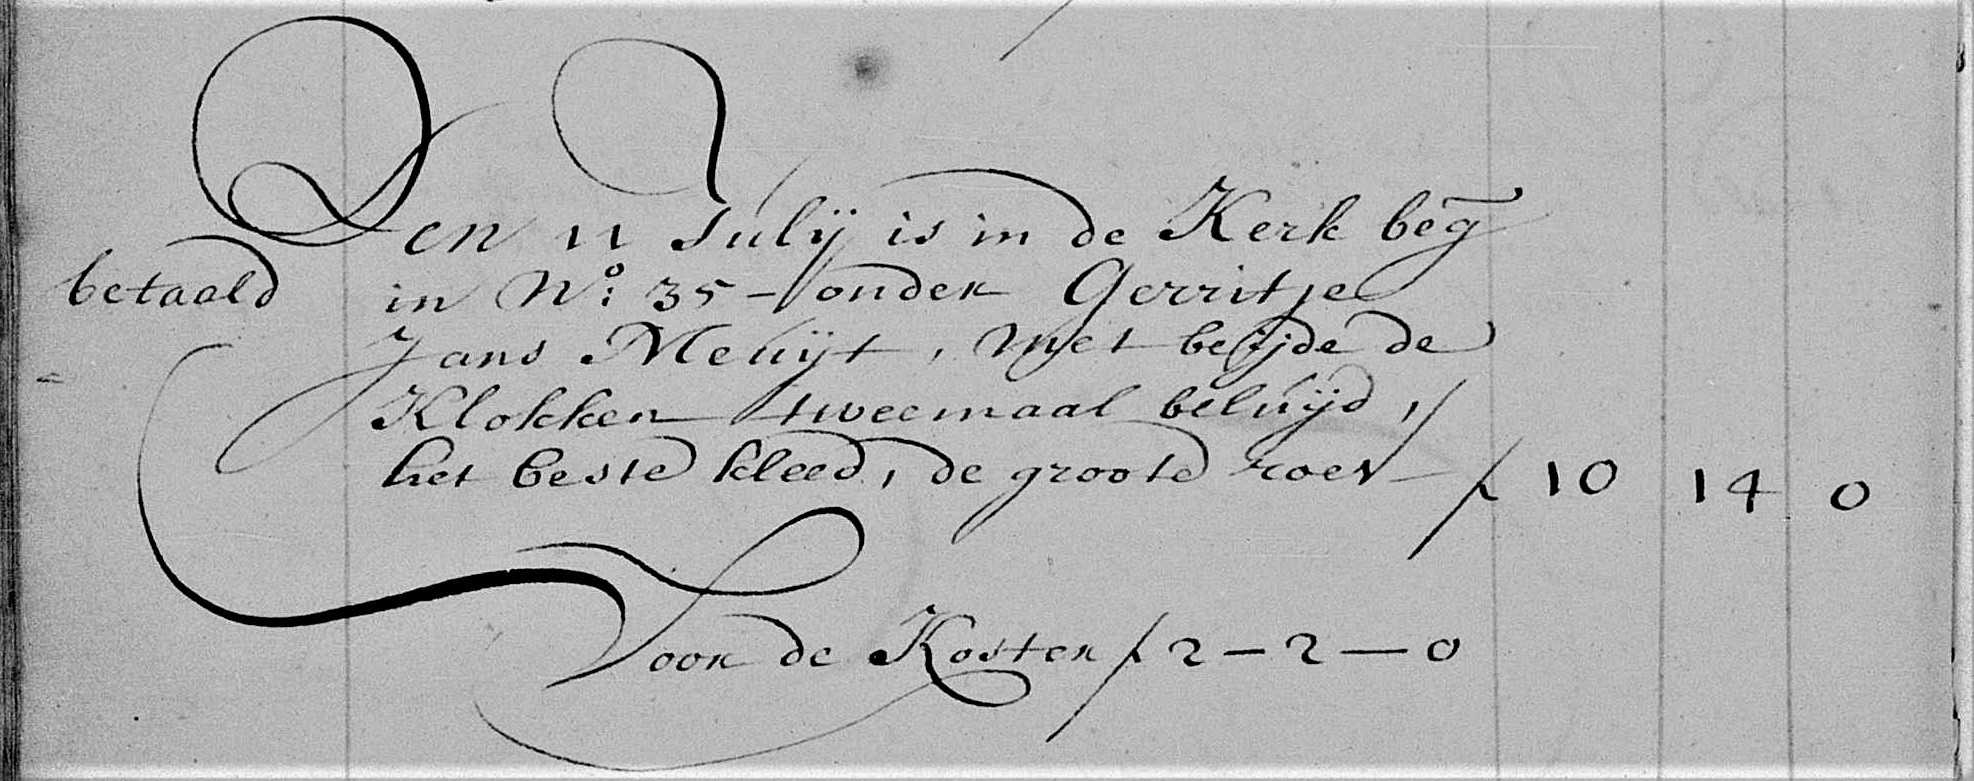 Den 11 Julij is in de Kerk beg̅
betaald in No: 35 - onder Gerritje
Jans Meuijt, met beijde de
Klokken tweemaal beluijd,
het beste kleed, de groote roef - ƒ 10 14 0
Voor de Koster ƒ 2 - 2 - 0